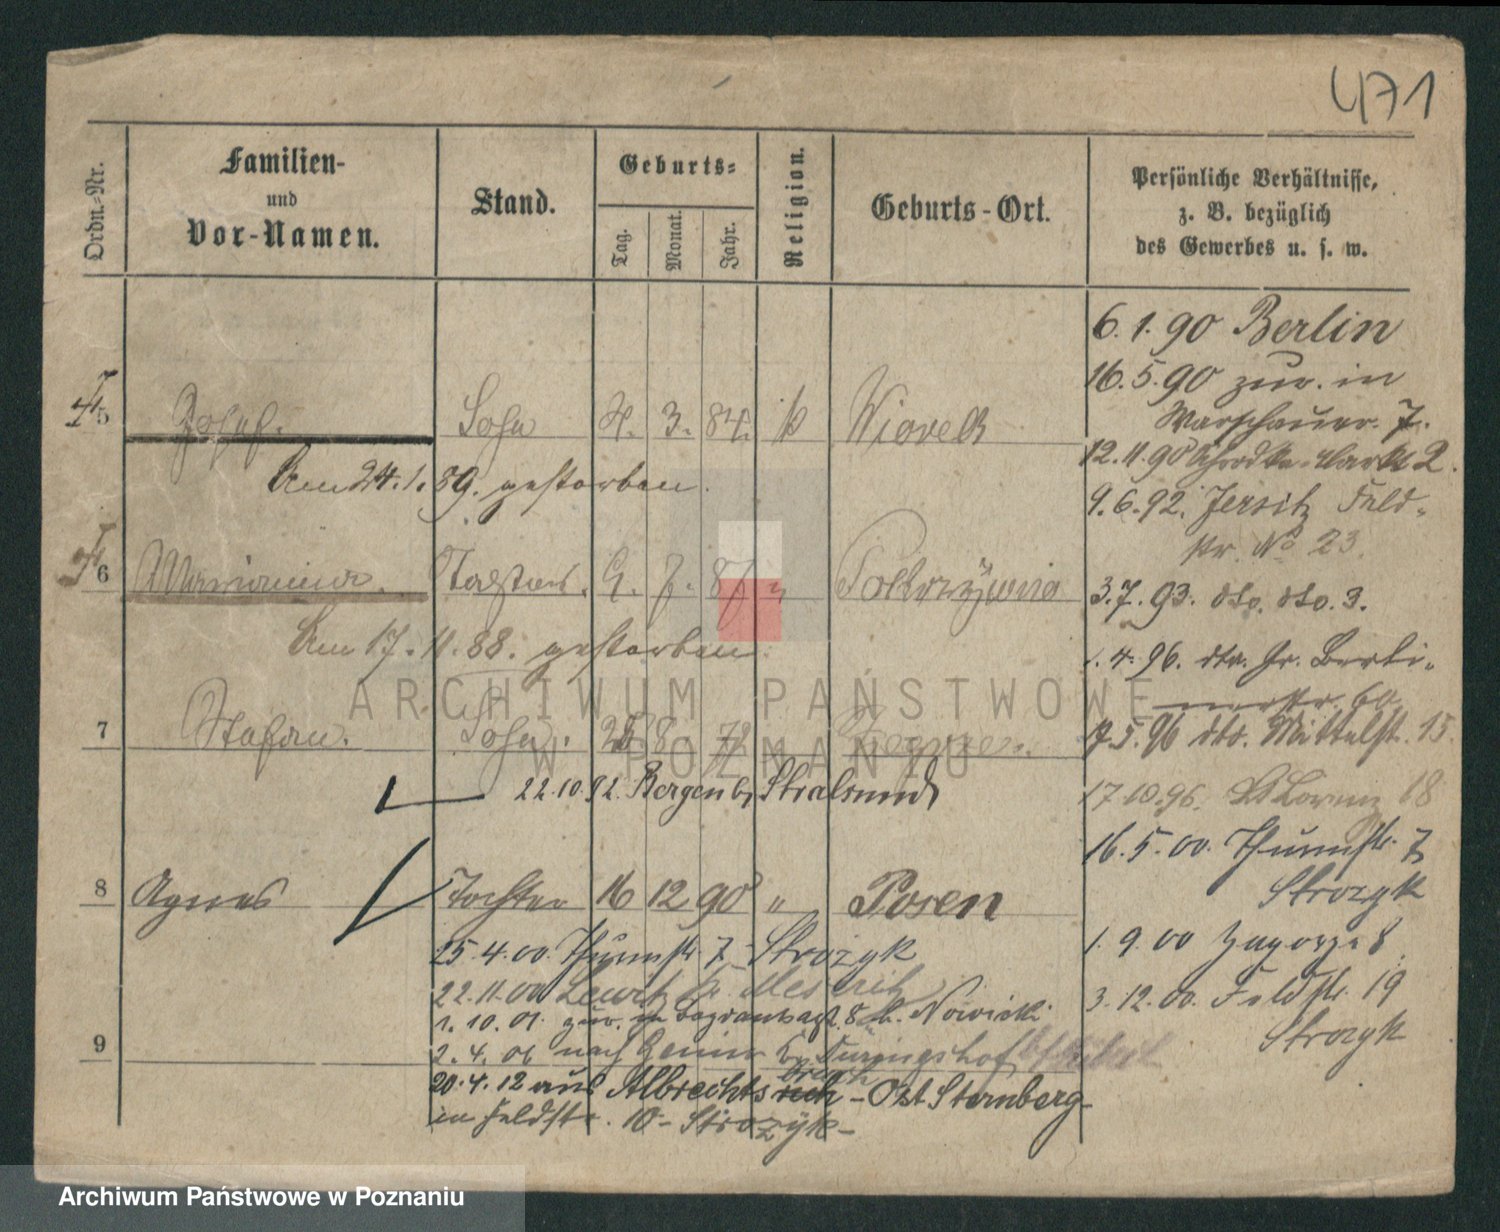 471
Ordn.-Nr.
Familien-
und
Vor-Namen.
Stand.
Geburts-
Tag.
Monat.
Jahr.
Religion.
Geburts-Ort.
Persönliche Verhältnisse,
z. B. bezüglich
des Gewerbes u. s. w.
6.1.90 Berlin
16.5.90 zur. in
Warschauer. 7.
5 Josef. Sohn 3. 84.
12.11.90 Markt 2.
Am 24.1.89. gestorben.
9.6.92. Jersitz Feld-
str. No 23.
6 Marianna. Tochter. 7. 87 "
3.7.93. dto. dto. 3.
Am 17.11.88. gestorben.
1.4.96. dto. Gr. Berli-
nerstr. 60
7 Stefan. Sohn. 8.
17.5.96 dto. Mittelst. 15
22.10.92. Bergen b/ Stralsund
17.10.96. Lorenz 18
16.5.00. Thurmstr. 7
Strozyk
8 Agnes Tochter 16 12 90 " Posen
25.4.00. Thurmstr. 7 Strozyk
1.9.00 Zagorze 8
22.11.00
3.12.00. Feldstr. 19
Strozyk
1.10.01. zur. 8 b. Nowicki
9
2.4.06 nach
20.4.12 aus Albrechts bruch - Ost Sternberg
in Feldstr. 10 - Strozyk -
ARCHIWUM PAŃSTWOWE
W POZNANIU
Archiwum Państwowe w Poznaniu